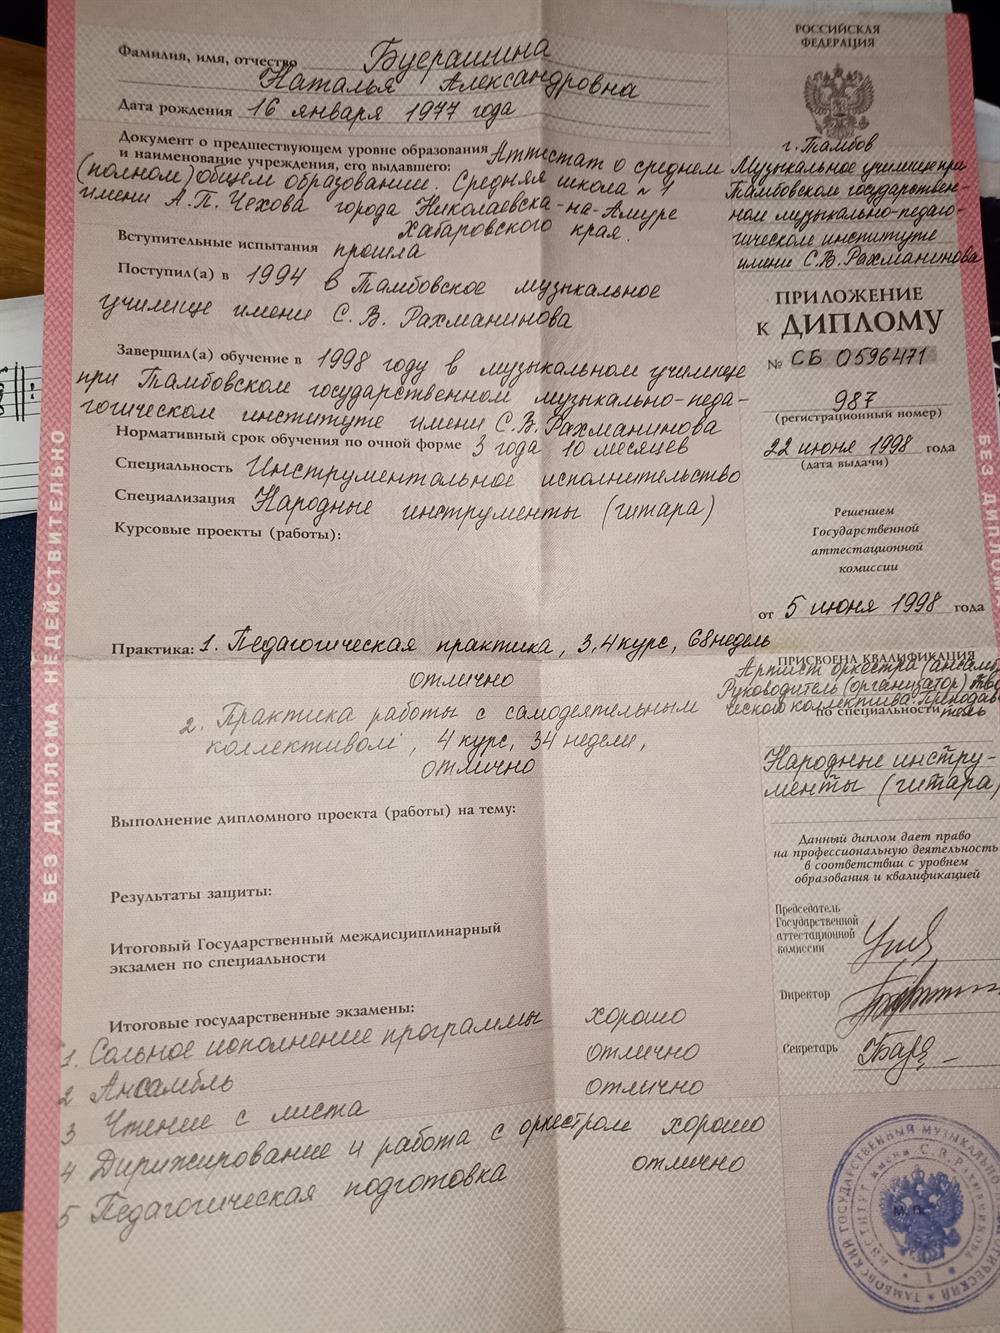 Фамилия, имя, отчество Буерашина
Наталья Александровна
Дата рождения 16 января 1977 года
Документ о предшествующем уровне образования
и наименование учреждения, его выдавшего: Аттестат о среднем
(полном) общем образовании. Средняя школа №4
имени А.П. Чехова города Николаевска-на-Амуре
Хабаровского края.
Вступительные испытания прошла
Поступил(а) в 1994 в Тамбовское музыкальное
училище имени С. В. Рахманинова
Завершил(а) обучение в 1998 году в музыкальном училище
при Тамбовском государственном музыкально-педа-
гогическом институте имени С.В. Рахманинова
Нормативный срок обучения по очной форме 3 года 10 месяцев
Специальность Инструментальное исполнительство
Специализация Народные инструменты (гитара)
Курсовые проекты (работы):
Практика: 1. Педагогическая практика, 3,4 курс, 68 недель
отлично
2. Практика работы с самодеятельным
коллективом, 4 курс, 34 недели,
отлично
Выполнение дипломного проекта (работы) на тему:
Результаты защиты:
Итоговый Государственный междисциплинарный
экзамен по специальности
Итоговые государственные экзамены:
1. Сольное исполнение программы хорошо
2 Ансамбль отлично
3 Чтение с листа отлично
4 Дирижирование и работа с оркестром хорошо
5 Педагогическая подготовка отлично
РОССИЙСКАЯ
ФЕДЕРАЦИЯ
г. Тамбов
Музыкальное училище при
Тамбовском государствен-
ном музыкально-педаго-
гическом институте
имени С.В. Рахманинова
ПРИЛОЖЕНИЕ
к ДИПЛОМУ
№ СБ 0596471
987
(регистрационный номер)
22 июня 1998 года
(дата выдачи)
Решением
Государственной
аттестационной
комиссии
от 5 июня 1998 года
ПРИСВОЕНА КВАЛИФИКАЦИЯ
Артист оркестра (ансамб
Руководитель (организатор) тво
ческого коллектива. Преподава
по специальности тель
Народные инстру-
менты (гитара)
Данный диплом дает право
на профессиональную деятельность
в соответствии с уровнем
образования и квалификацией
Председатель
Государственной
аттестационной
комиссии
Директор
Секретарь
М. П.
ТАМБОВСКИЙ ГОСУДАРСТВЕННЫЙ МУЗЫКАЛЬНО
ИНСТИТУТ имени С.В. Рахманинова
1
БЕЗ ДИПЛОМА НЕДЕЙСТВИТЕЛЬНО
БЕЗ ДИПЛОМА